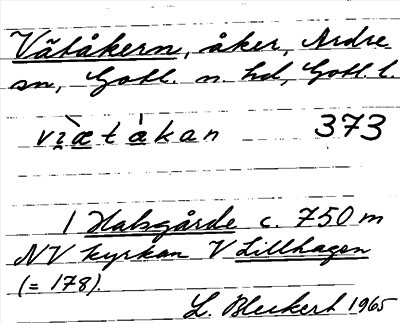 Vätåkern, åker, Ardre
sn, Gotl. n. hd, Gotl. l.
vi̯æ̀tàkan 373
1 Halsgårde c. 750 m
NV kyrkan V Lillhagen
(= 178).
L. Bleckert 1965